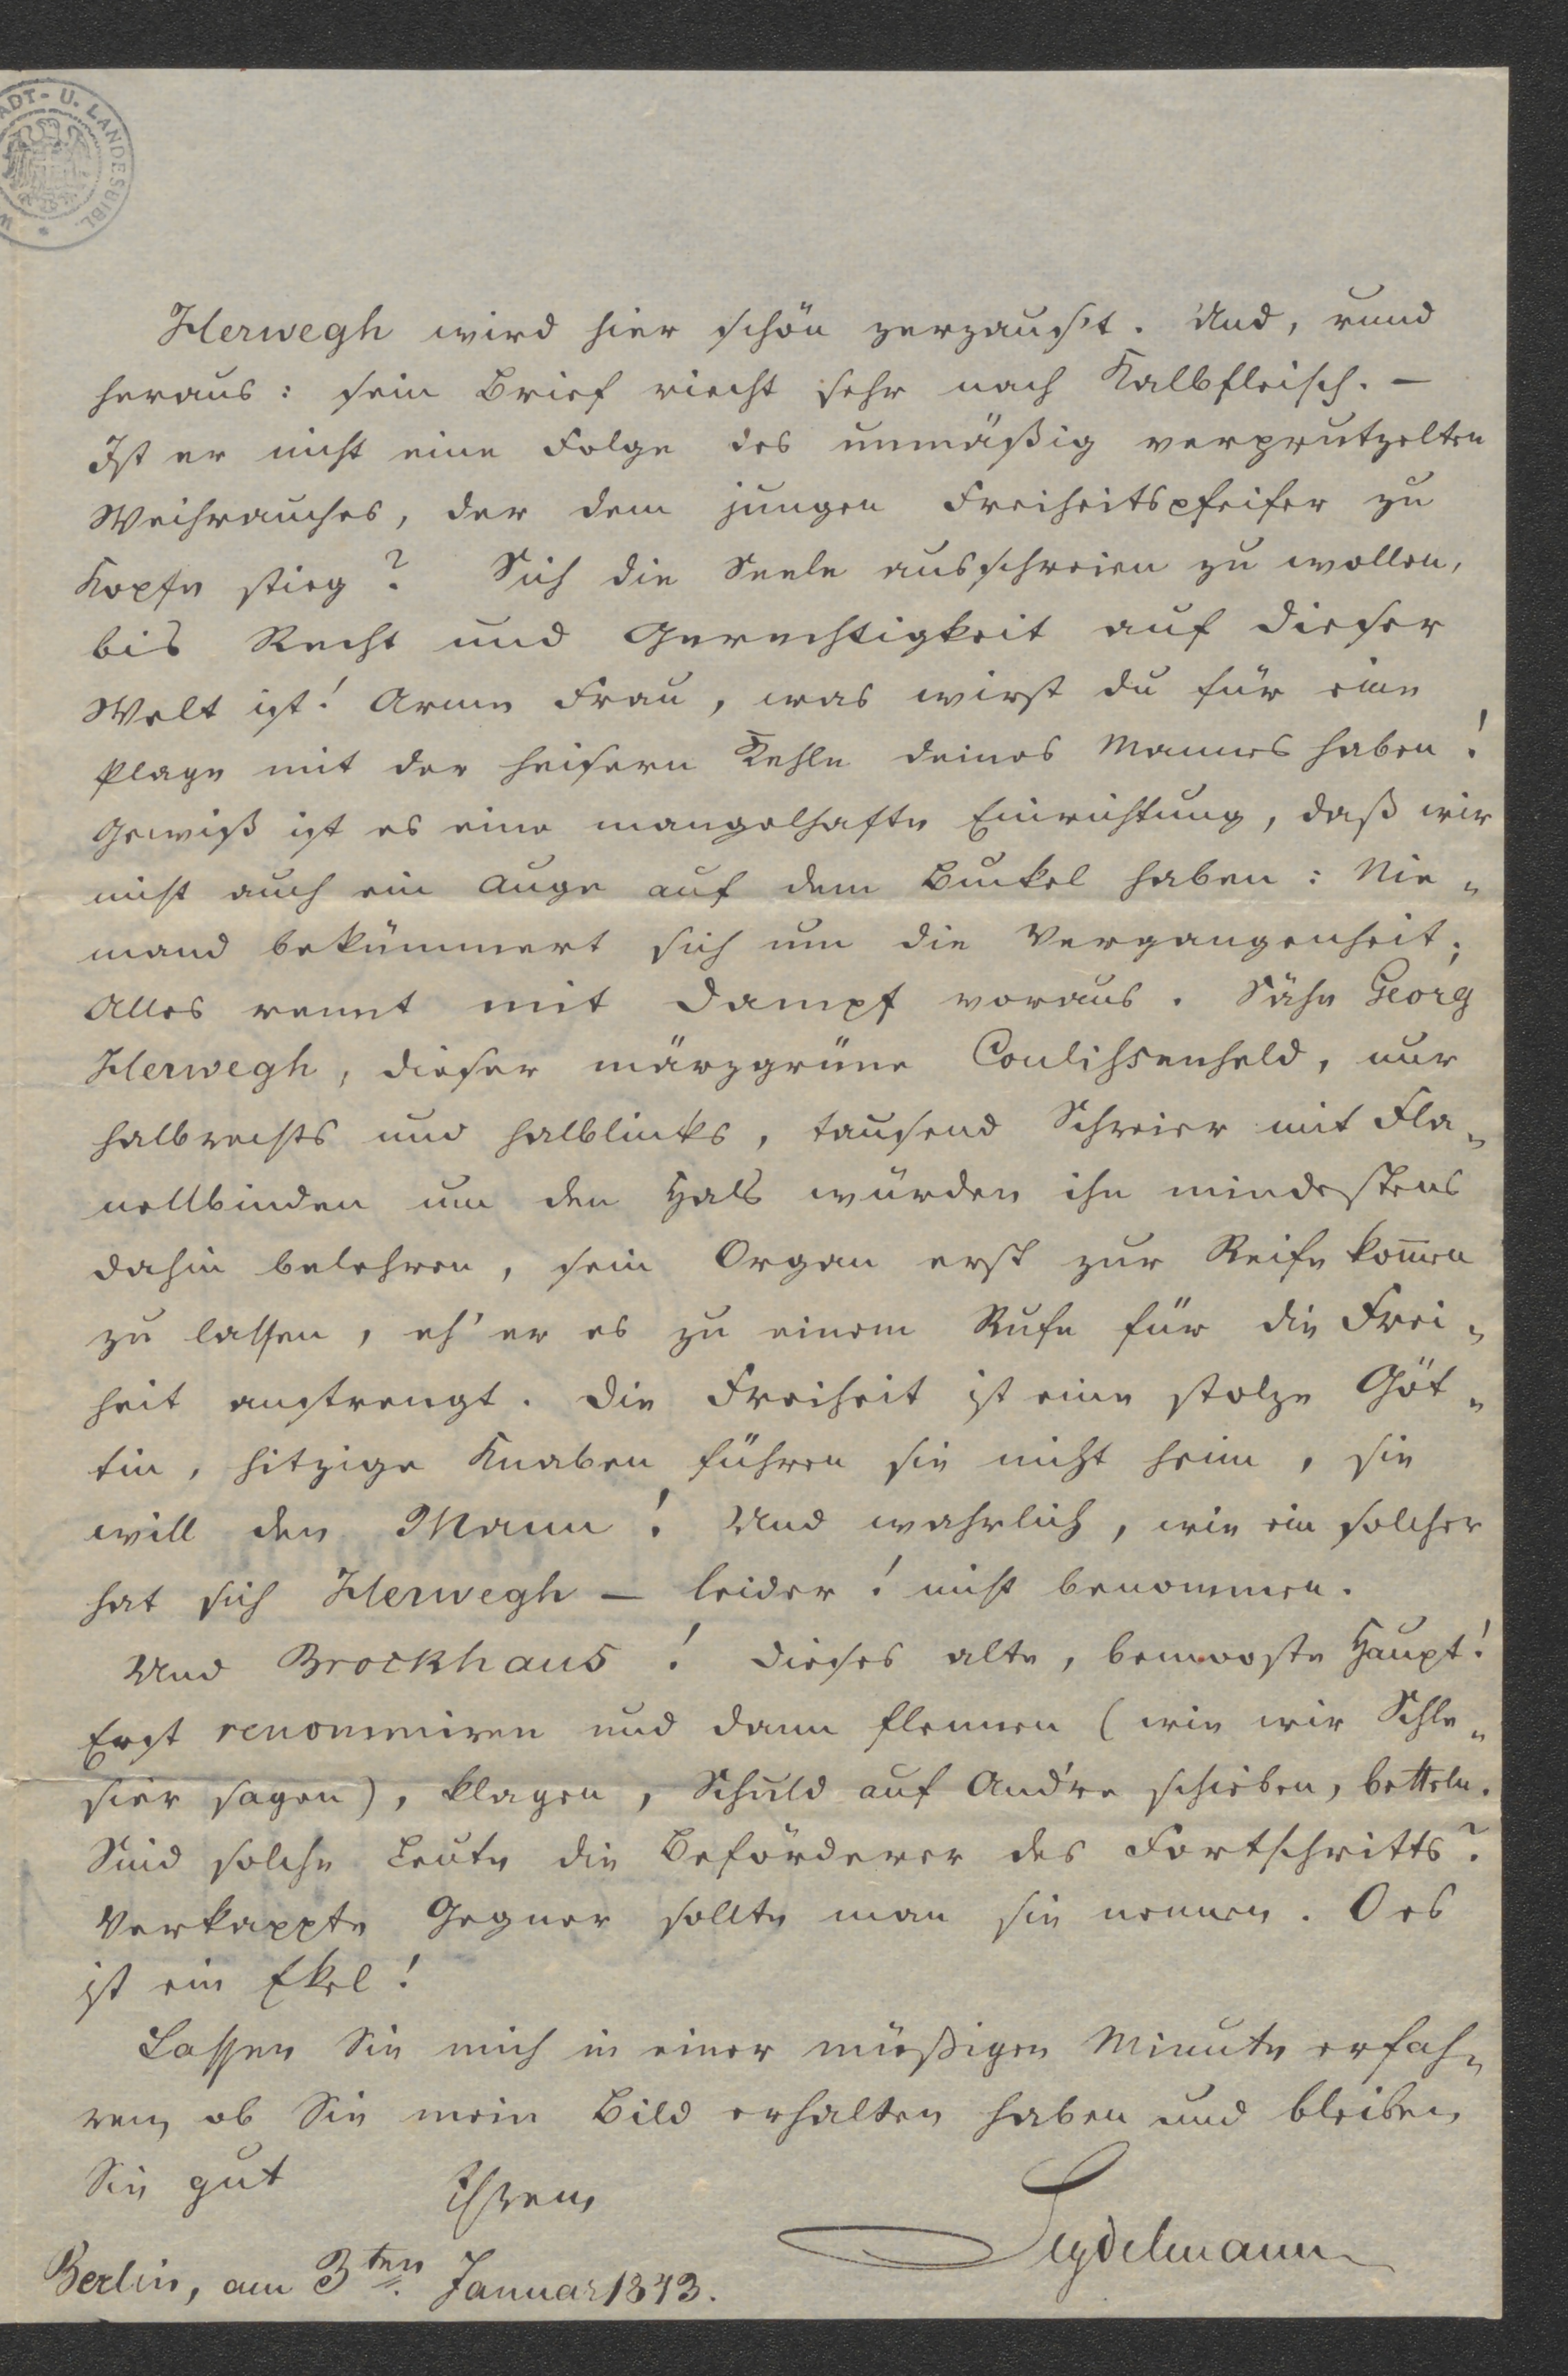 ADT- U. LANDESBIBL.
W
Herwegh wird hier schön zerzaus't. Und, rund
heraus: sein Brief riecht sehr nach Kalbfleisch. —
Ist er nicht eine Folge des unmäßig verprutzelten
Weihrauches, der dem jungen Freiheitspfeifer zu
Kopfe stieg? Sich die Seele ausschreien zu wollen,
bis Recht und Gerechtigkeit auf dieser
Welt ist! Arme Frau, was wirst du für eine
Plage mit der heisern Kehle deines Mannes haben!
Gewiß ist es eine mangelhafte Einrichtung, daß wir
nicht auch ein Auge auf dem Buckel haben: Nie-
mand bekümmert sich um die Vergangenheit;
Alles rennt mit Dampf voraus. Sähe Georg
Herwegh, dieser märzgrüne Coulissenheld, nur
halbrechts und halblinks, tausend Schreier mit Fla-
nellbinden um den Hals würden ihn mindestens
dahin belehren, sein Organ erst zur Reife kom̄en
zu lassen, eh' er es zu einem Rufe für die Frei-
heit anstrengt. Die Freiheit ist eine stolze Göt-
tin, hitzige Knaben führen sie nicht heim, sie
will den Mann! Und wahrlich, wie ein solcher
hat sich Herwegh — leider! nicht benommen.
Und Brockhaus! Dieses alte, bemooste Haupt!
Erst renommiren und dann flennen (wie wir Schle-
sier sagen), klagen, Schuld auf And're schieben, betteln.
Sind solche Leute die Beförderer des Fortschritts?
Verkappte Gegner sollte man sie nennen. O es
ist ein Ekel!
Lassen Sie mich in einer müßigen Minute erfah-
ren, ob Sie mein Bild erhalten haben und bleiben
Sie gut
Ihrem
Seydelmann
Berlin, am 3ten Januar 1843.